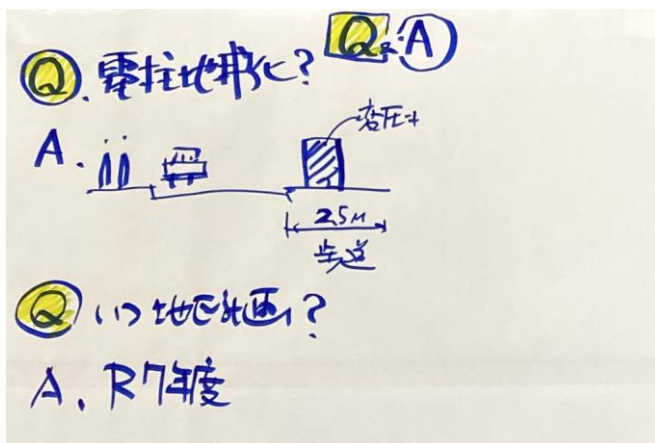 Q&A
Q. 電柱地中化?
A.
変圧器
2.5M
歩道
Q いつ地区計画?
A. R7年度